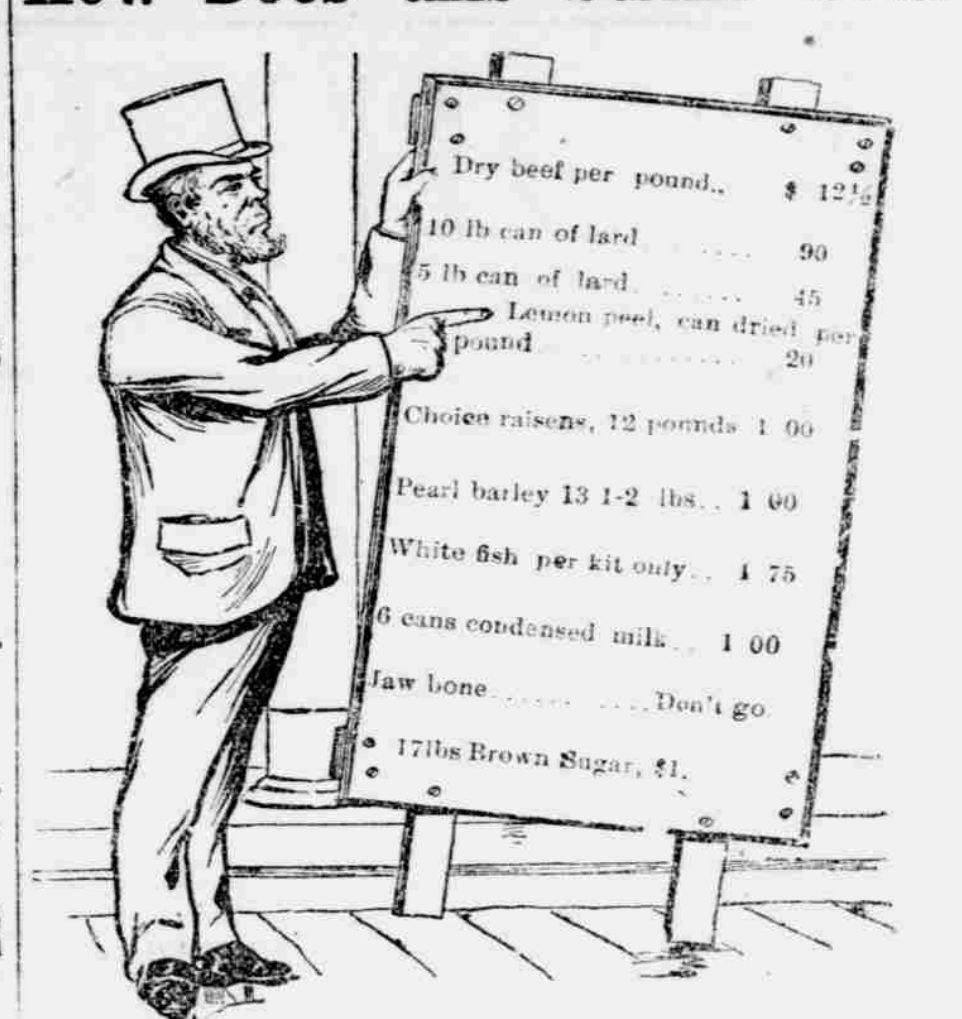 How Does this
Dry beef per pound.. $ 12½
10 lb can of lard ........ 90
5 lb can of lard ....... 45
Lemon peel, can dried per
pound .............. 20
Choice raisens, 12 pounds 1 00
Pearl barley 13 1-2 lbs.. 1 00
White fish per kit only.. 1 75
6 cans condensed milk... 1 00
Jaw bone ........... Don't go
17lbs Brown Sugar, $1.